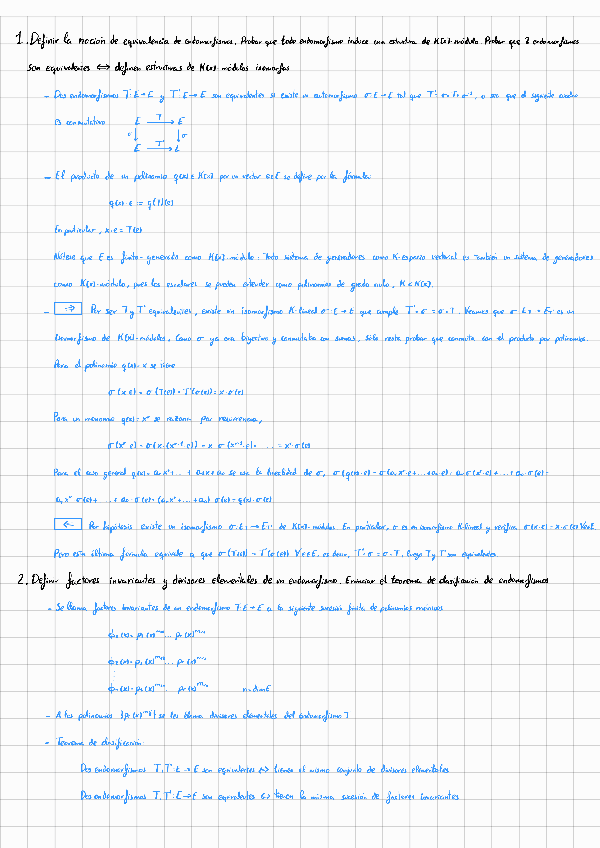 1. Definir la nocion de equivalencia de endomorfismos. Probar que todo endomorfismo induce una estructura de K[x]-módulo. Probar que 2 endomorfismos
son equivalentes ⟺ definen estructuras de K[x]-módulos isomorfos
- Dos endomorfismos T: E→E y T': E→E son equivalentes si existe un automorfismo σ: E→E tal que T' = σ∘T∘σ⁻¹, o sea que el siguiente cuadro
es conmutativo E T→ E
σ↓ ↓σ
E T'→ E
- El producto de un polinomio q(x) ∈ K[x] por un vector e∈E se define por la fórmula:
q(x)·e := q(T)(e)
En particular, x·e = T(e)
Nótese que E es finito-generado como K[x]-módulo: Todo sistema de generadores como K-espacio vectorial es también un sistema de generadores
como K[x]-módulo, pues los escalares se pueden entender como polinomios de grado nulo, K⊂K[x].
- ⇒ Por ser T y T' equivalentes, existe un isomorfismo K-lineal σ: E→E que cumple T'∘σ = σ∘T. Veamos que σ: E_T → E_T' es un
isomorfismo de K[x]-módulos. Como σ ya era biyectivo y conmutaba con sumas, sólo resta probar que conmuta con el producto por polinomios.
Para el polinomio q(x) = x se tiene
σ(x·e) = σ(T(e)) = T'(σ(e)) = x·σ(e)
Para un monomio q(x) = xⁿ se razona por recurrencia,
σ(xⁿ·e) = σ(x·(xⁿ⁻¹·e)) = x·σ(xⁿ⁻¹·e) = ... = xⁿ·σ(e)
Para el caso general q(x) = aₙxⁿ+...+a₁x+a₀ se usa la linealidad de σ, σ(q(x)·e) = σ(aₙxⁿ·e+...+a₀·e) = aₙσ(xⁿ·e)+...+a₀·σ(e) =
aₙxⁿ·σ(e)+...+a₀·σ(e) = (aₙxⁿ+...+a₀)·σ(e) = q(x)·σ(e)
⇐ Por hipótesis existe un isomorfismo σ: E_T → E_T' de K[x]-módulos. En particular, σ es un isomorfismo K-lineal y verifica σ(x·e) = x·σ(e) ∀e∈E.
Pero esta última fórmula equivale a que σ(T(e)) = T'(σ(e)) ∀e∈E, es decir, T'∘σ = σ∘T, luego T y T' son equivalentes
2. Definir factores invariantes y divisores elementales de un endomorfismo. Enunciar el teorema de clasificación de endomorfismos
- Se llama factores invariantes de un endomorfismo T: E→E a la siguiente sucesión finita de polinomios monicos
ϕ₁(x) = p₁(x)^m₁₁ ... pᵣ(x)^m₁ᵣ
ϕ₂(x) = p₁(x)^m₂₁ ... pᵣ(x)^m₂ᵣ
⋮
ϕₙ(x) = p₁(x)^mₙ₁ ... pᵣ(x)^mₙᵣ n = dim E
- A los polinomios {pᵢ(x)^mᵢⱼ} se les llama divisores elementales del endomorfismo T
- Teorema de clasificación:
Dos endomorfismos T, T': E→E son equivalentes ⟺ tienen el mismo conjunto de divisores elementales
Dos endomorfismos T, T': E→E son equivalentes ⟺ tienen la misma sucesión de factores invariantes